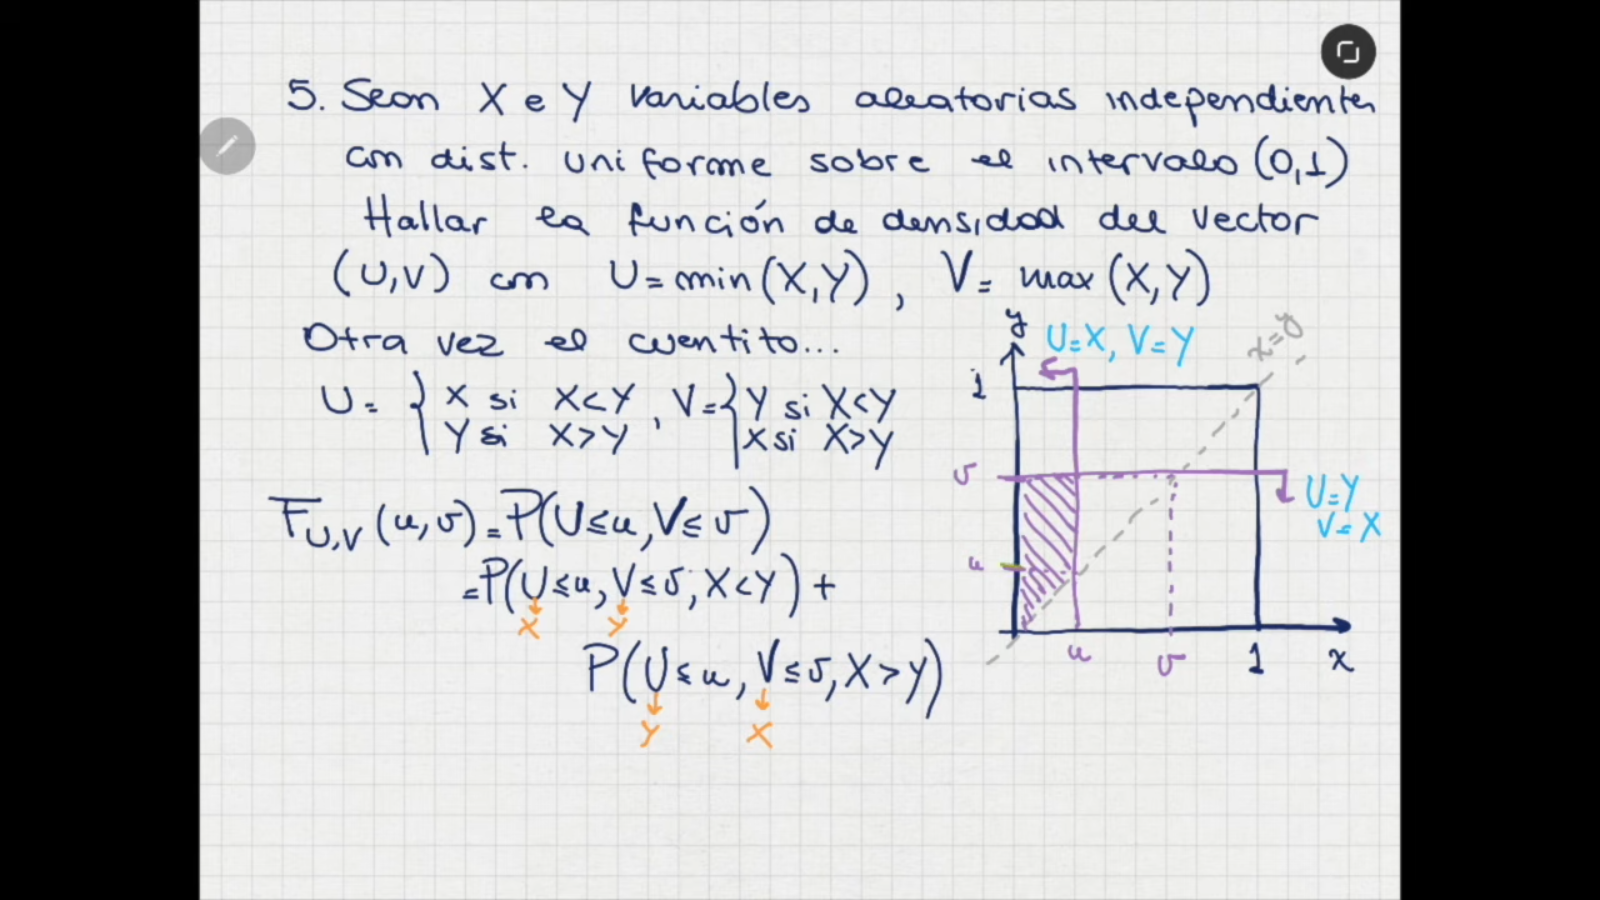 5. Sean X e Y variables aleatorias independientes
con dist. uniforme sobre el intervalo (0,1)
Hallar la función de densidad del vector
(U,V) con U = min(X,Y), V = max(X,Y)
Otra vez el cuentito...
U = { X si X<Y , V = { Y si X<Y
Y si X>Y X si X>Y
F_{U,V}(u,v) = P(U≤u, V≤v)
= P(U≤u, V≤v, X<Y) +
X Y
P(U≤u, V≤v, X>Y)
Y X
y
U=X, V=Y
x=y
1
v
U=Y
V=X
u
u
v
1
x